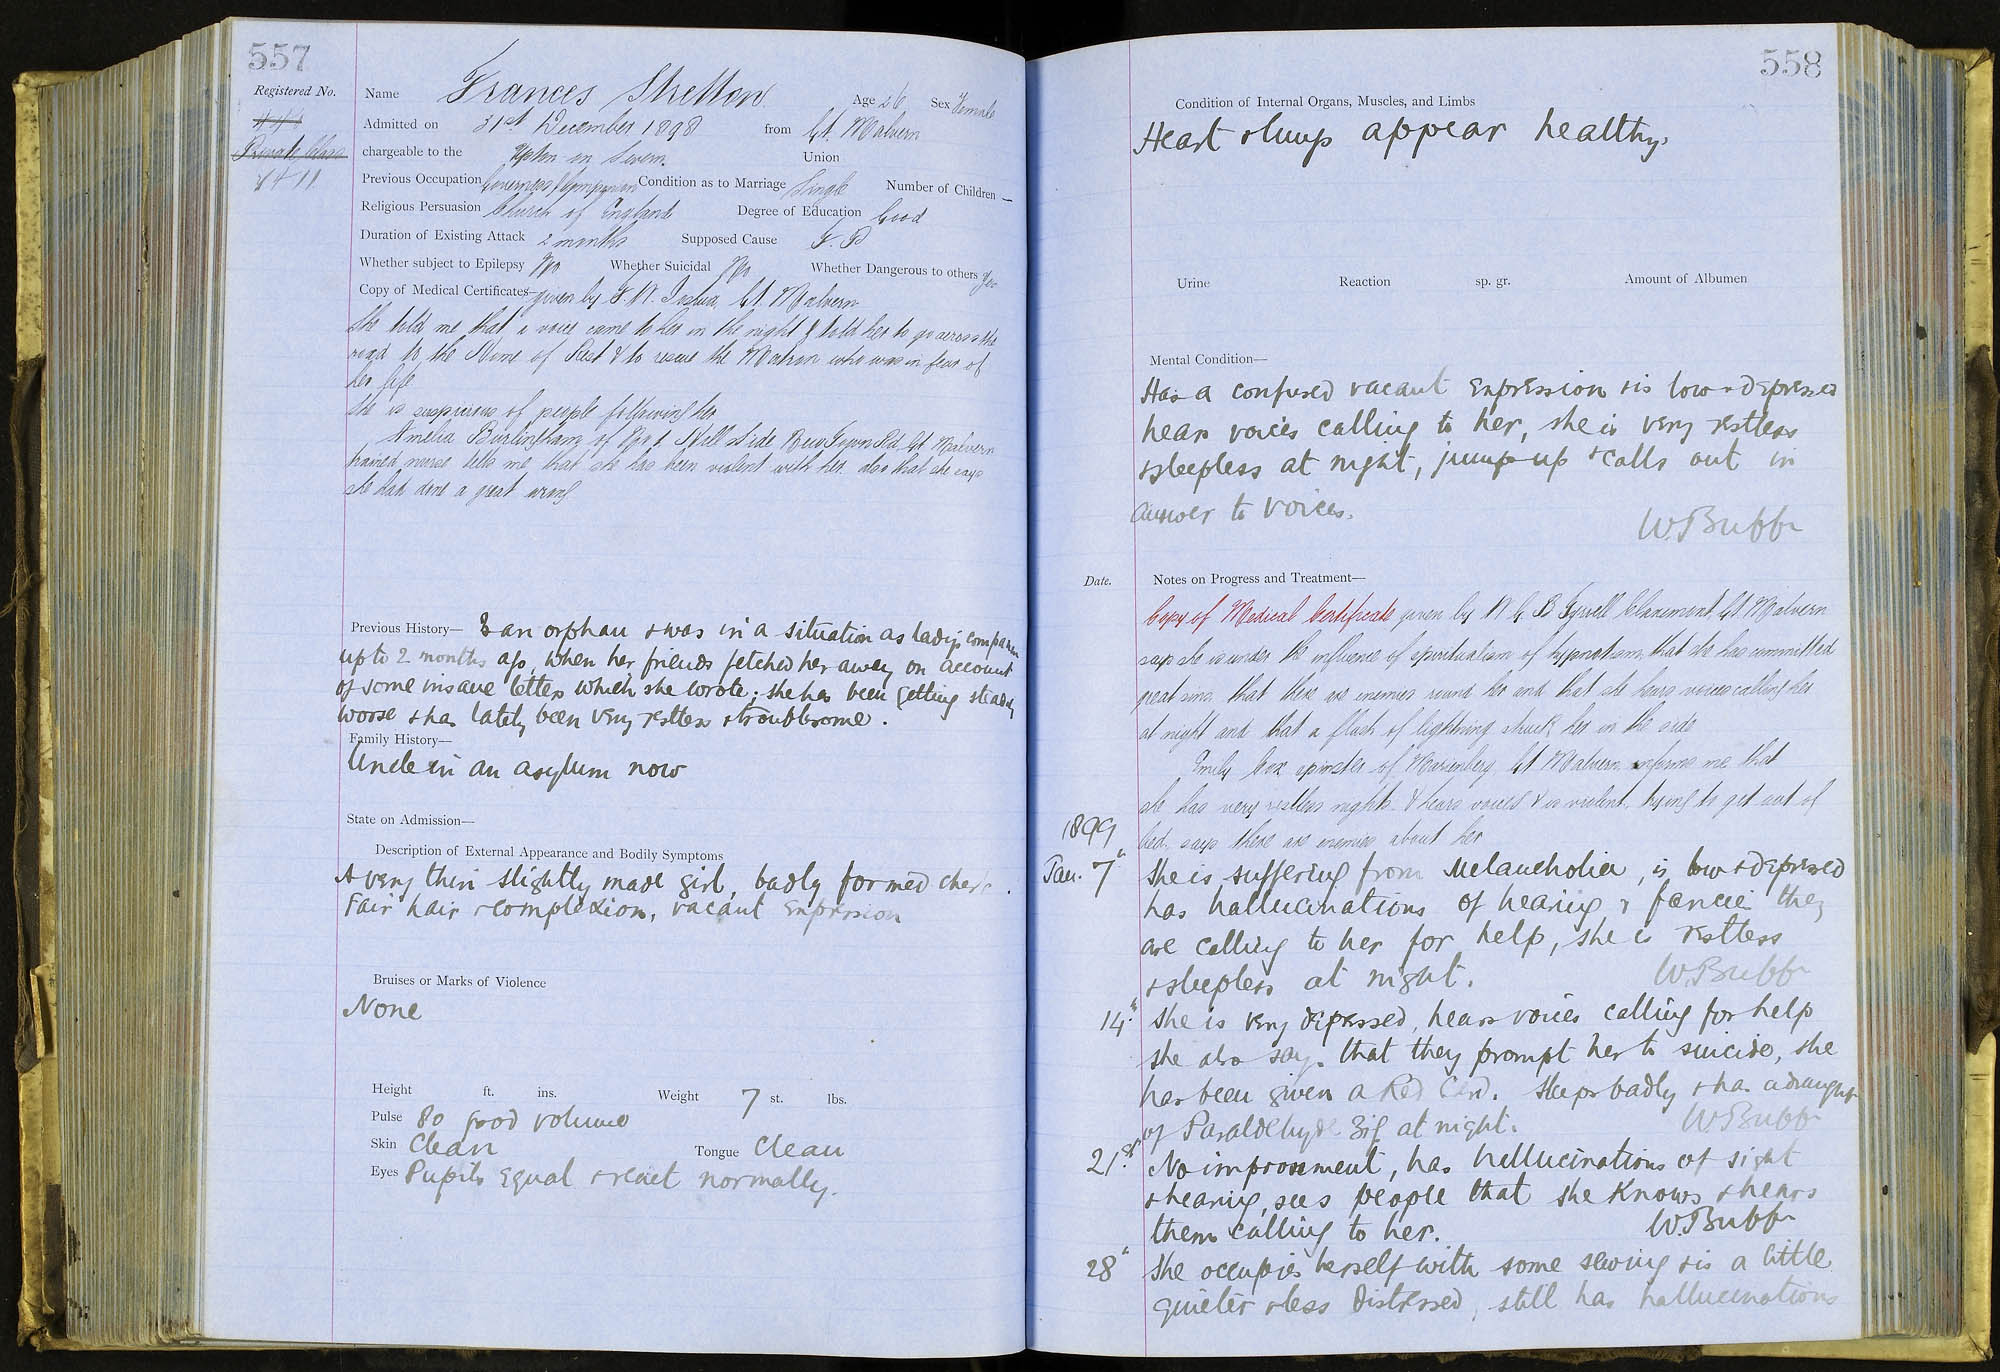 557
Registered No.
Private Class
7411
Name Frances Stretton Age 26 Sex Female
Admitted on 31st December 1898 from Gt. Malvern
chargeable to the Upton on Severn Union
Previous Occupation Governess & Companion Condition as to Marriage Single Number of Children —
Religious Persuasion Church of England Degree of Education Good
Duration of Existing Attack 2 months Supposed Cause
Whether subject to Epilepsy No Whether Suicidal No Whether Dangerous to others Yes
Copy of Medical Certificate given by F. W. Joshua, Gt. Malvern
She told me that a voice came to her in the night & told her to go across the
road to the Home of Rest & to rescue the Matron who was in fear of
her life
She is suspicious of people following her
Amelia Burlingham of No 2 Hill Side, Gt Malvern
trained nurse tells me that she has been violent with her also that she says
she had done a great wrong
Previous History— Is an orphan & was in a situation as lady's companion
up to 2 months ago, when her friends fetched her away on account
of some insane letters which she wrote; she has been getting steadily
worse & has lately been very restless & troublesome.
Family History—
Uncle in an asylum now
State on Admission—
Description of External Appearance and Bodily Symptoms
A very thin slightly made girl, badly formed chest.
Fair hair & complexion, vacant expression
Bruises or Marks of Violence
None
Height ft. ins. Weight 7 st. lbs.
Pulse 80 good volume
Skin Clean Tongue Clean
Eyes Pupils equal & react normally.
558
Condition of Internal Organs, Muscles, and Limbs
Heart & lungs appear healthy.
Urine Reaction sp. gr. Amount of Albumen
Mental Condition—
Has a confused vacant expression & is low & depressed
hears voices calling to her, she is very restless
& sleepless at night, jumps up & calls out in
answer to voices.
Date. Notes on Progress and Treatment—
Copy of Medical Certificate given by Claremont, Gt. Malvern
says she is under the influence of spiritualism of hypnotism, that she has committed
great sins, that there are enemies round her and that she hears voices calling her
at night and that a flash of lightning struck her in the side
Emily Cox spinster of Gt Malvern informs me that
she has very restless nights & hears voices & is violent, trying to get out of
bed, says there are enemies about her
1899
Jan. 7" She is suffering from Melancholia, is low & depressed
has hallucinations of hearing & fancies they
are calling to her for help, she is restless
& sleepless at night.
14" She is very depressed, hears voices calling for help
she also says that they prompt her to suicide, she
has been given a Red Card. Sleeps badly & has a draught
of Paraldehyde at night.
21st No improvement, has hallucinations of sight
& hearing, sees people that she knows & hears
them calling to her.
28" She occupies herself with some sewing & is a little
quieter & less distressed, still has hallucinations